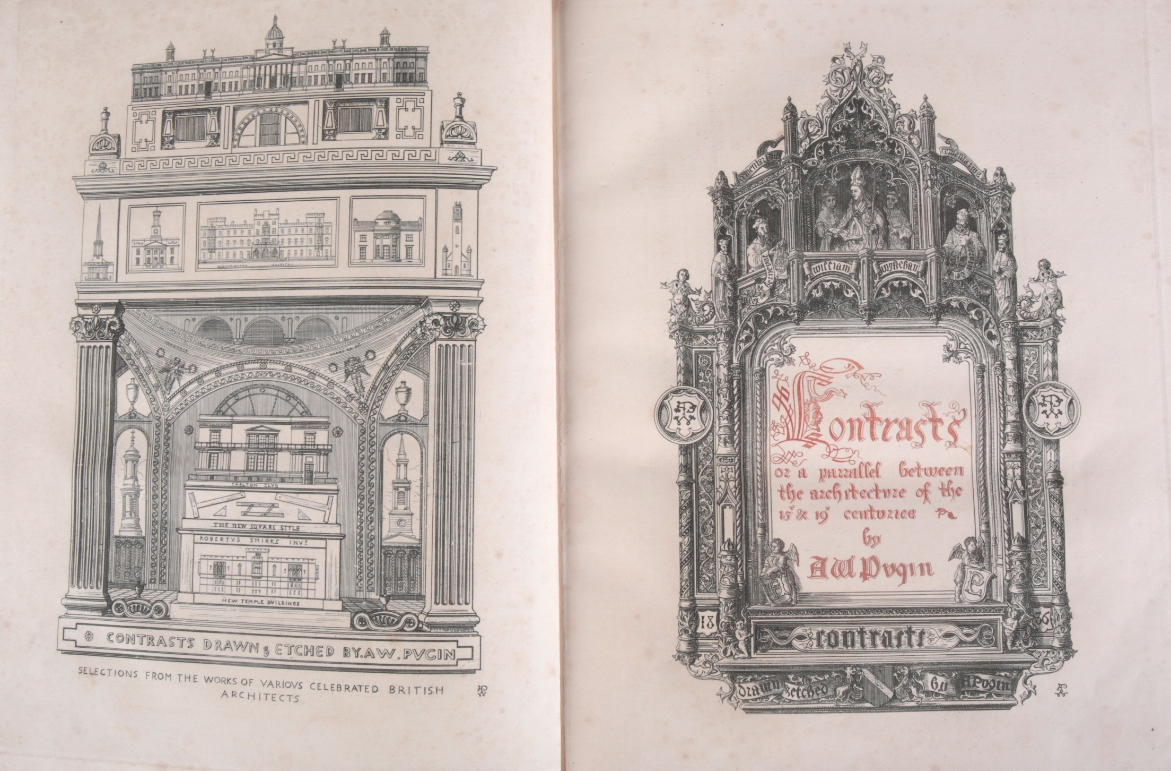 CARLTON CLUB
THE NEW SQUARE STYLE
ROBERTVS SMIRKE INVT
NEW TEMPLE BUILDINGS
CONTRASTS DRAWN & ETCHED BY. A.W. PVGIN
SELECTIONS FROM THE WORKS OF VARIOVS CELEBRATED BRITISH
ARCHITECTS
william wykeham
Contrasts
or a parrallel between
the architecture of the
15th & 19th centuries
by
A W Pugin
18 36
contrasts
drawn etched by A Pugin